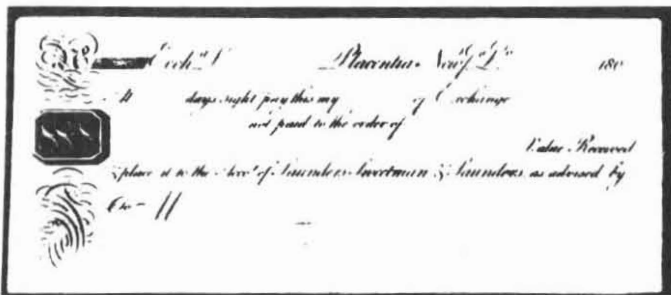 Exch.^e Placentia Newf.^d L.^d 180
At days sight pay this my of Exchange
not paid to the order of
Value Received
& place it to the Acco.^t of Saunders Sweetman & Saunders as advised by
To